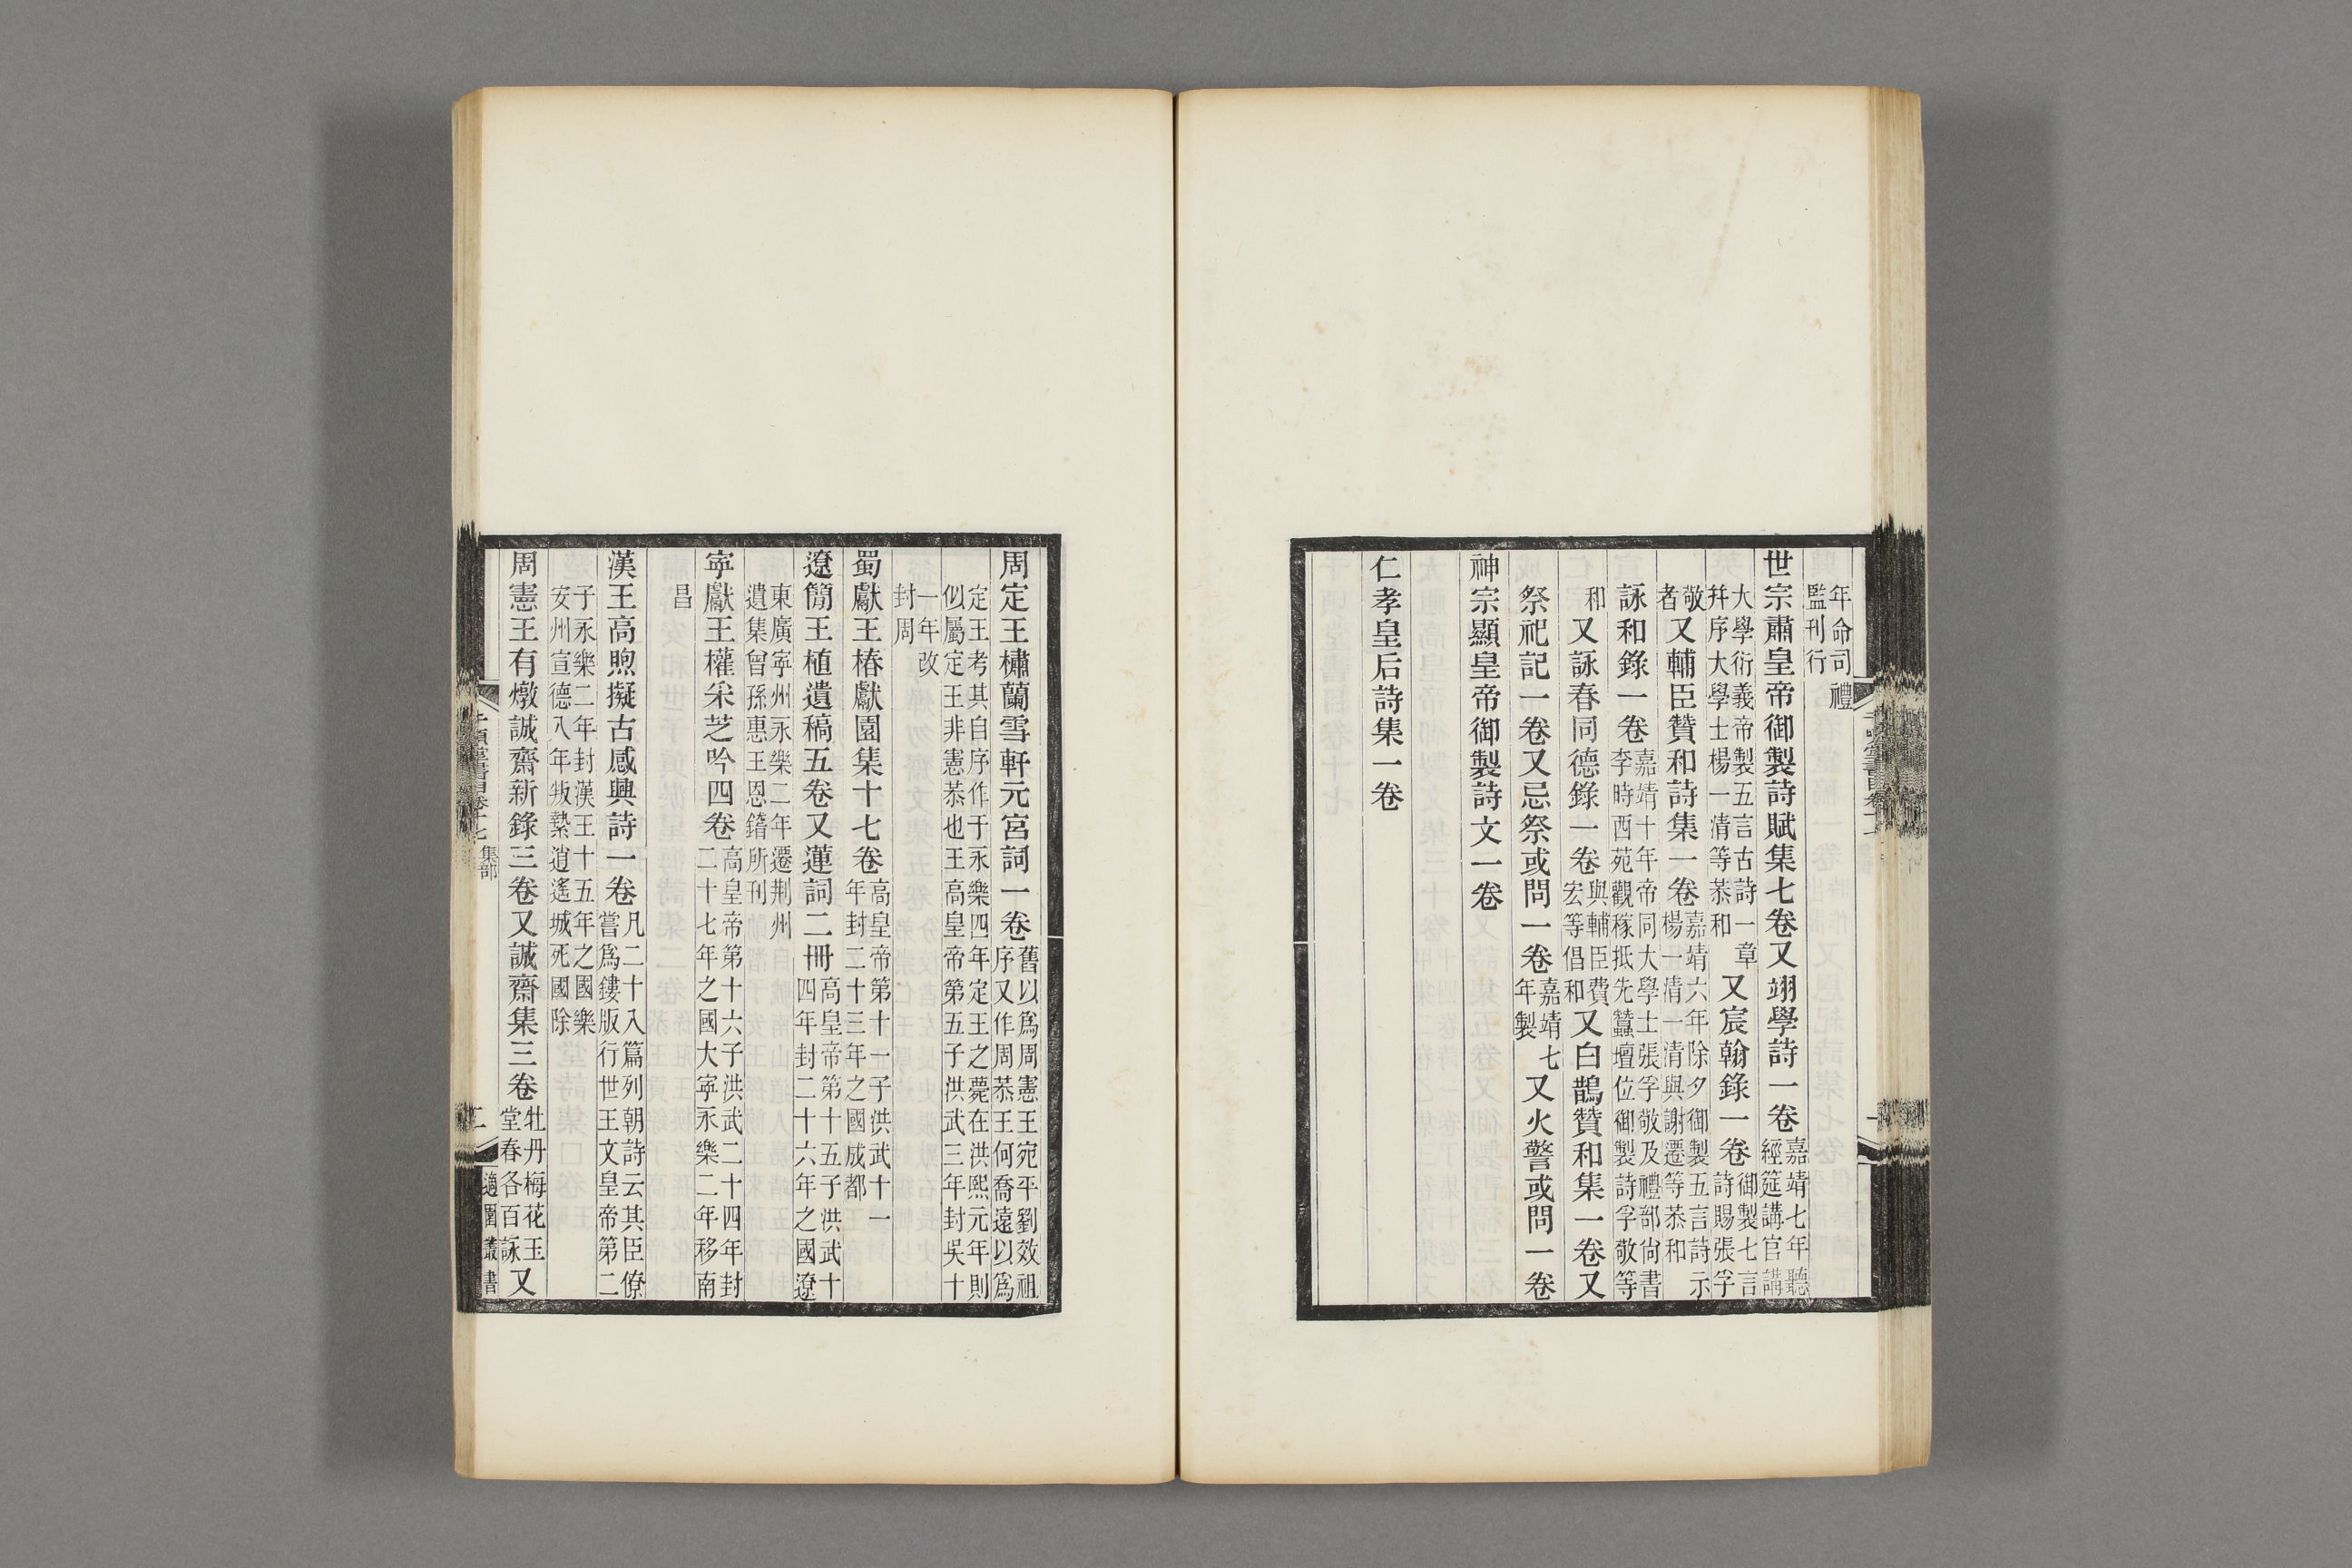 年命司禮
監刊行
世宗肅皇帝御製詩賦集七卷又翊學詩一卷嘉靖七年聽
經筵講官講
大學衍義帝製五言古詩一章
幷序大學士楊一清等恭和
又宸翰錄一卷御製七言
詩賜張孚
敬
者
又輔臣贊和詩集一卷嘉靖六年除夕御製五言詩示
楊一清一清與謝遷等恭和
詠和錄一卷嘉靖十年帝同大學士張孚敬及禮部尙書
李時西苑觀稼抵先蠶壇位御製詩孚敬等
和
又詠春同德錄一卷與輔臣費
宏等倡和
又白鵲贊和集一卷又
祭祀記一卷又忌祭或問一卷嘉靖七
年製
又火警或問一卷
神宗顯皇帝御製詩文一卷
仁孝皇后詩集一卷
周定王橚蘭雪軒元宮詞一卷舊以爲周憲王宛平劉效祖
序又作周恭王何喬遠以爲
定王考其自序作于永樂四年定王之薨在洪熙元年則
似屬定王非憲恭也王高皇帝第五子洪武三年封吳十
一年改
封周
蜀獻王椿獻園集十七卷高皇帝第十一子洪武十一
年封二十三年之國成都
遼簡王植遺稿五卷又蓮詞二冊高皇帝第十五子洪武十
四年封二十六年之國遼
東廣寧州永樂二年遷荆州
遺集曾孫惠王恩鐕所刊
寧獻王權采芝吟四卷高皇帝第十六子洪武二十四年封
二十七年之國大寧永樂二年移南
昌
漢王高煦擬古感興詩一卷凡二十八篇列朝詩云其臣僚
嘗爲鏤版行世王文皇帝第二
子永樂二年封漢王十五年之國樂
安州宣德八年叛縶逍遙城死國除
周憲王有燉誠齋新錄三卷又誠齋集三卷牡丹梅花玉
堂春各百詠
又
千頃堂書目卷十七 集部
二
適園叢書